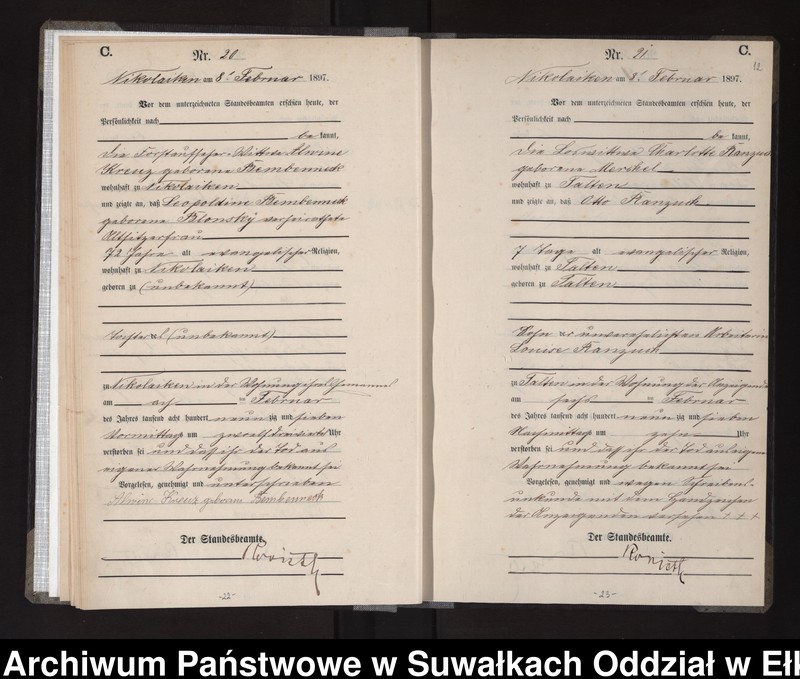 C.
Nr. 20
Nikolaiken am 8t Februar 1897.
Vor dem unterzeichneten Standesbeamten erschien heute, der
Persönlichkeit nach
be kannt,
die Forstaufseher-Wittwe Alwine
Kreuz geborene Bembenneck
wohnhaft zu Nikolaiken
und zeigte an, daß Leopoldine Bembenneck
geborene Plonsky verheirathete
Altsitzerfrau
72 Jahre alt evangelischer Religion,
wohnhaft zu Nikolaiken
geboren zu (unbekannt)
Tochter (unbekannt)
zu Nikolaiken in der Wohnung
am acht ten Februar
des Jahres tausend acht hundert neun zig und sieben
Vormittags um zwölf Uhr
verstorben sei und daß ihr der Tod aus
eigener Wahrnehmung bekannt sei
Vorgelesen, genehmigt und unterschrieben
Alwine Kreuz geborene Bembenneck
Der Standesbeamte.
-22-
C.
12
Nr. 21
Nikolaiken am 8t Februar 1897.
Vor dem unterzeichneten Standesbeamten erschien heute, der
Persönlichkeit nach
be kannt,
die Loswittwe Charlotte Kanzuck
geborene Merchel
wohnhaft zu Talten
und zeigte an, daß Otto Kanzuck
7 Tage alt evangelischer Religion,
wohnhaft zu Talten
geboren zu Talten
Sohn der unverehelichten Arbeiterin
Louise Kanzuck
zu Talten in der Wohnung der Anzeigende
am sechs ten Februar
des Jahres tausend acht hundert neun zig und sieben
Nachmittags um zehn Uhr
verstorben sei und daß ihr der Tod aus eigener
Wahrnehmung bekannt sei
Vorgelesen, genehmigt und wegen Schreibens-
unkunde mit dem Handzeichen
der Anzeigenden versehen + + +
Der Standesbeamte.
-23-
Archiwum Państwowe w Suwałkach Oddział w Ełk